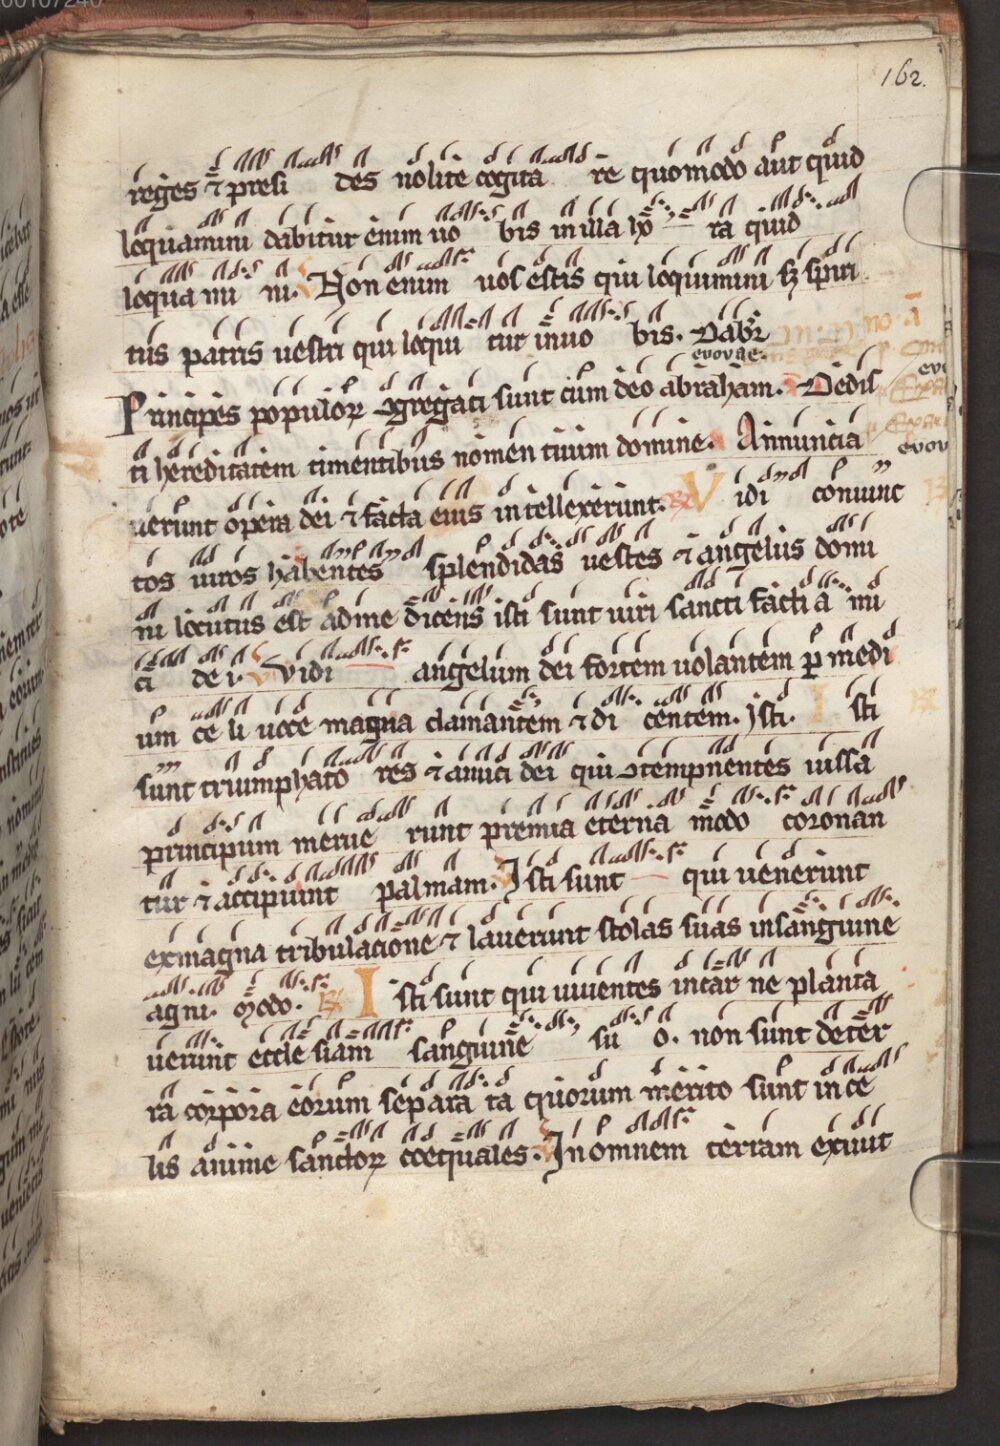 162.
reges ⁊ presi des nolite cogita re quomodo aut quid
loquamini dabitur enim uo bis in illa ho ra quid
loqua mi ni. Non enim uos estis qui loquimini sꝫ spiri
tus patris uestri qui loqui tur in uo bis. Dabit̉
euouae.
Principes populoꝝ ꝯgregati sunt cum deo abraham. Dedis
ti hereditatem timentibus nomen tuum domine. Annuncia
uerunt opera dei ⁊ facta eius intellexerunt. ℟ Vidi coniunc
tos uiros habentes splendidas uestes ⁊ angelus domi
ni locutus est ad me dicens isti sunt uiri sancti facti a mi
ci dei. Vidi angelum dei fortem uolantem ꝑ medi
um celi uoce magna clamantem ⁊ di centem. Isti. Isti
sunt triumphato res ⁊ amici dei qui ꝯtempnentes iussa
principum merue runt premia eterna modo coronan
tur ⁊ accipiunt palmam. Isti sunt qui uenerunt
ex magna tribulacione ⁊ lauerunt stolas suas in sanguine
agni. Modo. ℟ Isti sunt qui uiuentes in car ne planta
uerunt eccle siam sanguine su o. non sunt deter
ra corpora eorum separa ta quorum merito sunt in ce
lis anime sanctoꝝ coequales. In omnem terram exiuit